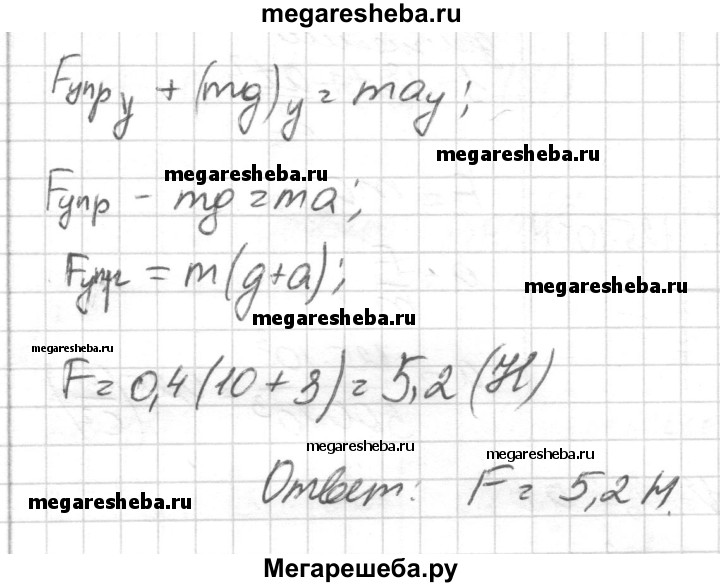 megaresheba.ru
Fупр y + (mg)y = may;
megaresheba.ru
megaresheba.ru
Fупр - mg = ma;
megaresheba.ru
Fупр = m(g+a);
megaresheba.ru
megaresheba.ru
F = 0,4(10+3) = 5,2 (Н)
megaresheba.ru
megaresheba.ru
Ответ: F = 5,2 Н.
megaresheba.ru
Мегарешеба.ру